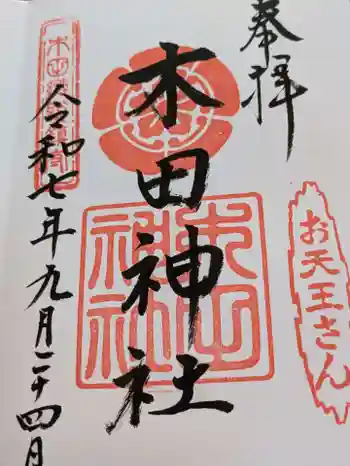 奉拝
お天王さん
木田神社
木田神社
令和七年九月二十四日